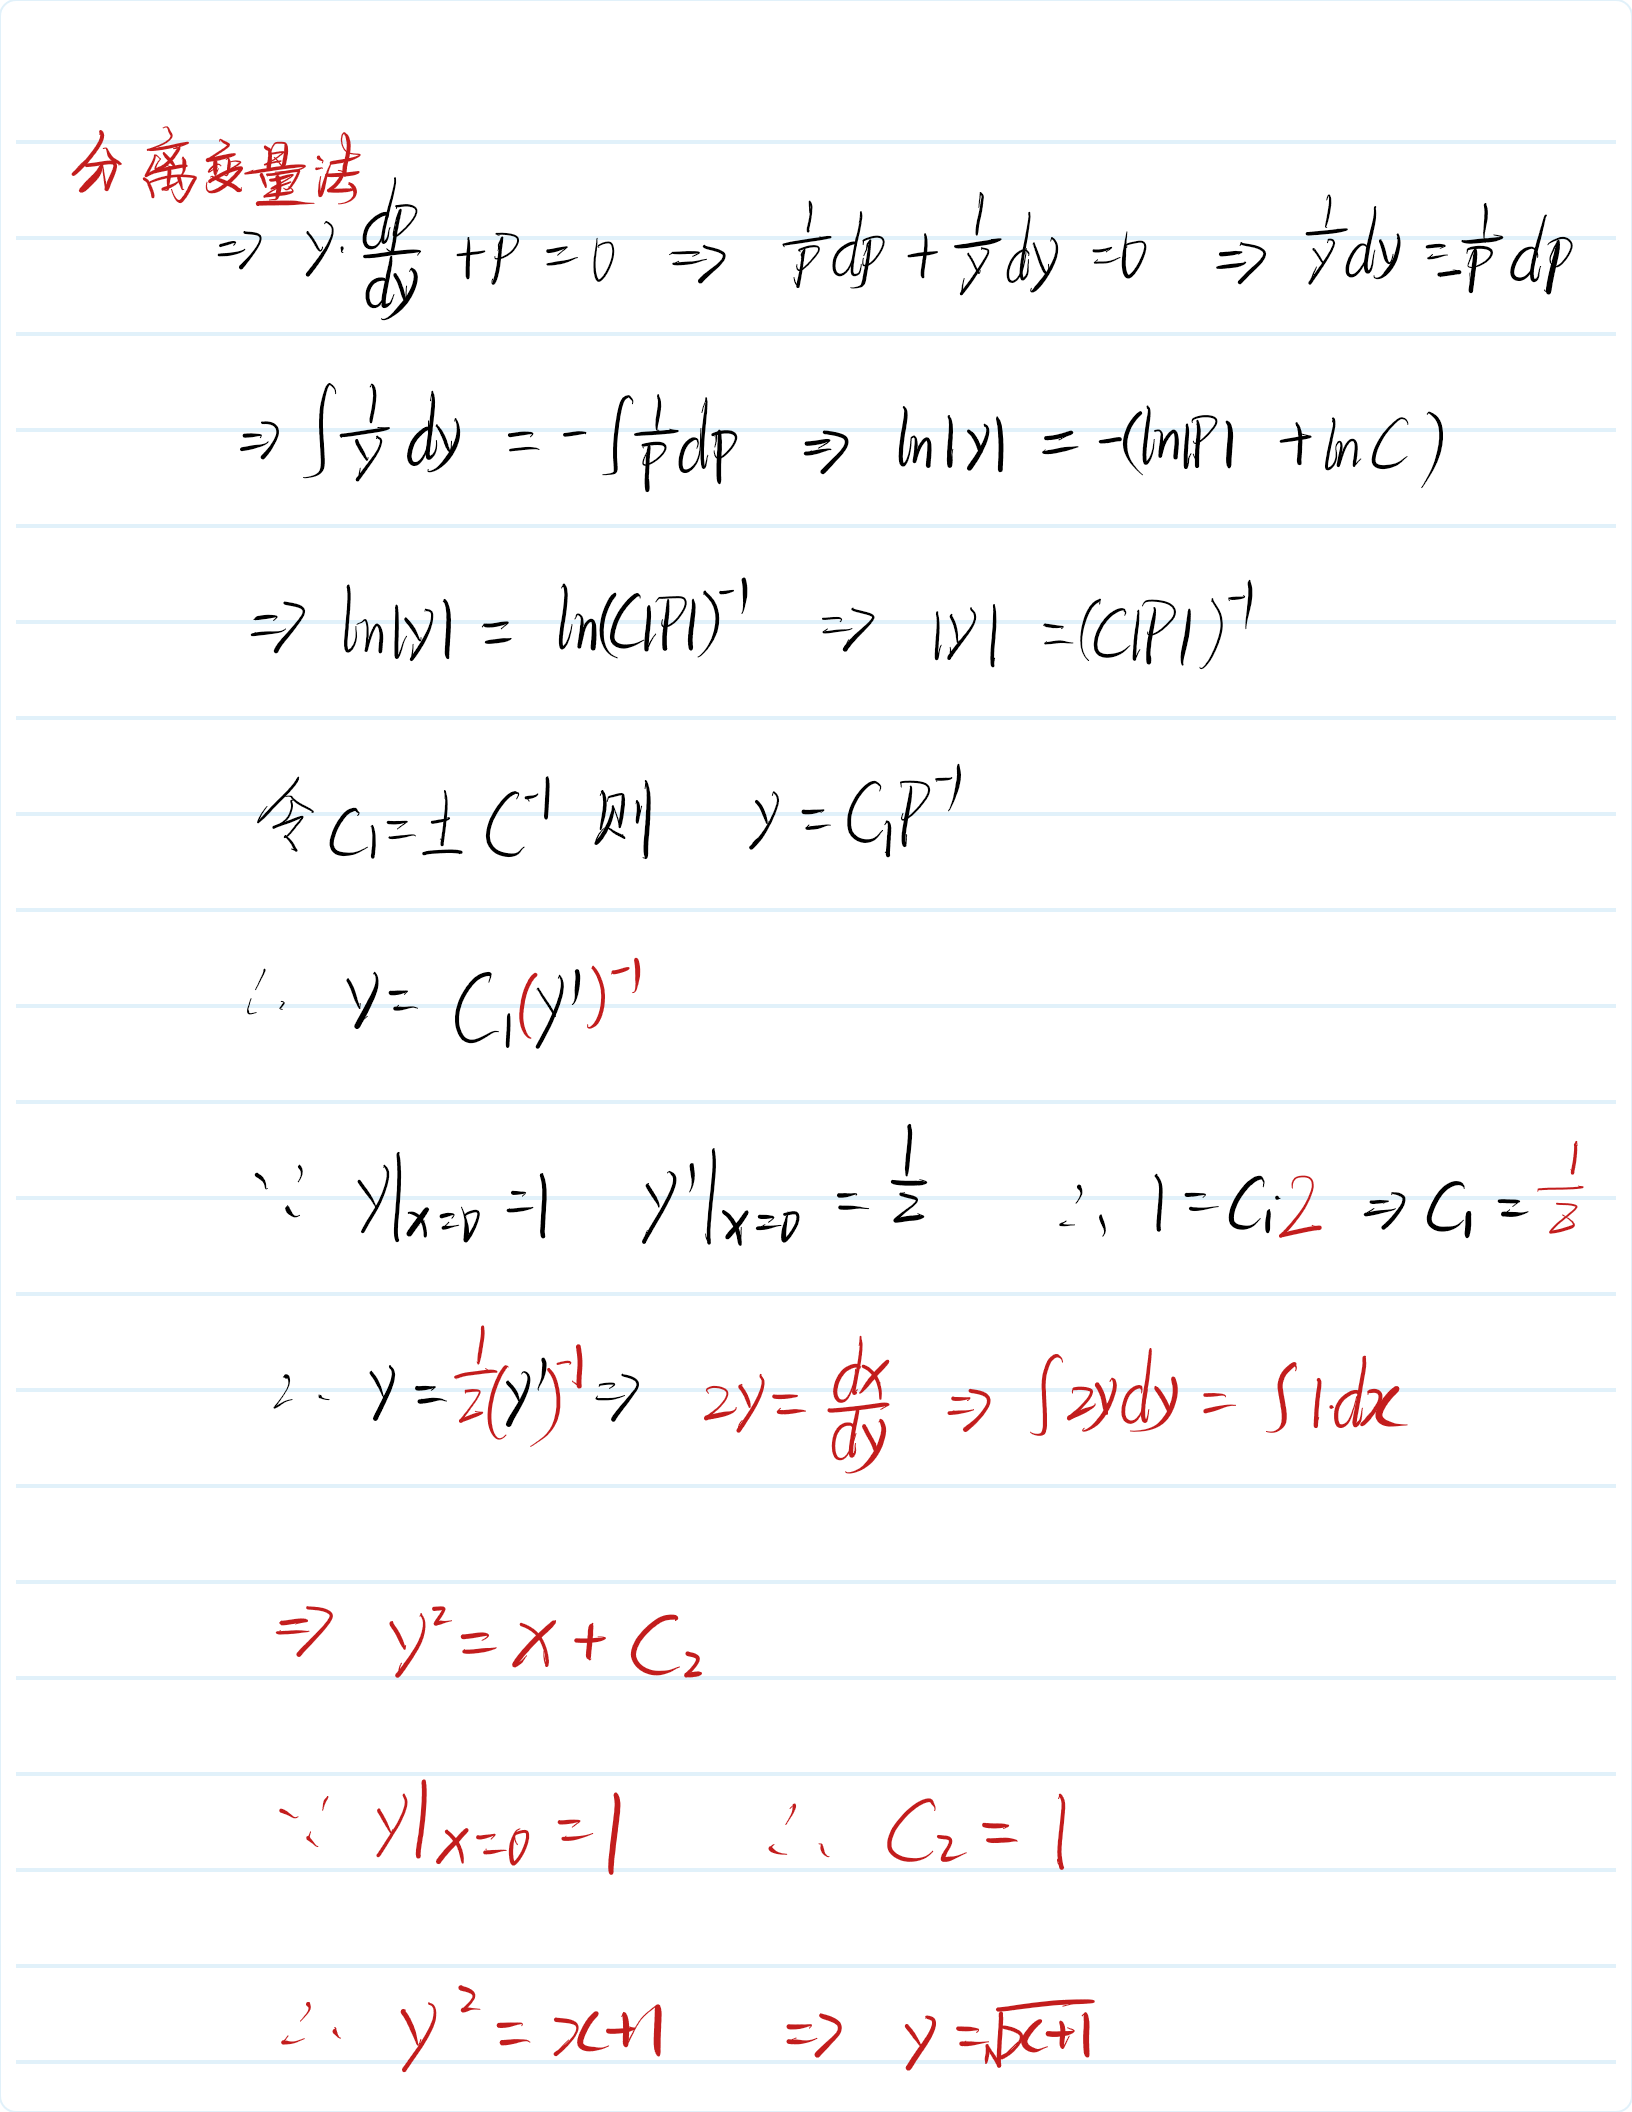 分离变量法
⇒ y·dp/dy + p = 0 ⇒ 1/p dp + 1/y dy = 0 ⇒ 1/y dy = -1/p dp
⇒ ∫ 1/y dy = -∫ 1/p dp ⇒ ln|y| = -(ln|P| + ln C)
⇒ ln|y| = ln(C|P|)⁻¹ ⇒ |y| = (C|P|)⁻¹
令 C₁ = ± C⁻¹ 则 y = C₁P⁻¹
∴ y = C₁(y')⁻¹
∵ y|ₓ₌₀ = 1 y'|ₓ₌₀ = 1/2 ∴ 1 = C₁·2 ⇒ C₁ = 1/2
∴ y = 1/2 (y')⁻¹ ⇒ 2y = dx/dy ⇒ ∫ 2y dy = ∫ 1·dx
⇒ y² = x + C₂
∵ y|ₓ₌₀ = 1 ∴ C₂ = 1
∴ y² = x+1 ⇒ y = √(x+1)